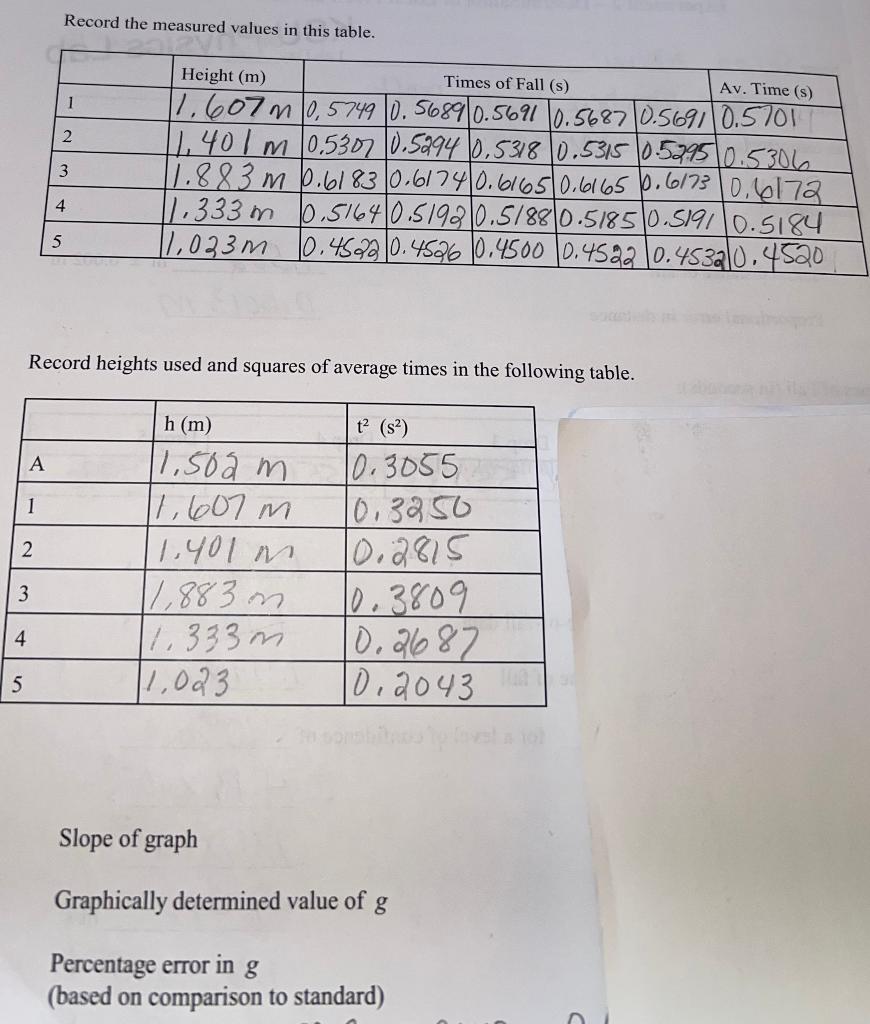 Record the measured values in this table.
Height (m) Times of Fall (s) Av. Time (s)
1 1.607 m 0.5749 0.5689 0.5691 0.5687 0.5691 0.5701
2 1.401 m 0.5307 0.5294 0.5318 0.5315 0.5295 0.5306
3 1.883 m 0.6183 0.6174 0.6165 0.6165 0.6173 0.6172
4 1.333 m 0.5164 0.5192 0.5188 0.5185 0.5191 0.5184
5 1.023 m 0.4522 0.4526 0.4500 0.4522 0.4532 0.4520
Record heights used and squares of average times in the following table.
h (m) t² (s²)
A 1.502 m 0.3055
1 1.607 m 0.3250
2 1.401 m 0.2815
3 1.883 m 0.3809
4 1.333 m 0.2687
5 1.023 0.2043
Slope of graph
Graphically determined value of g
Percentage error in g
(based on comparison to standard)